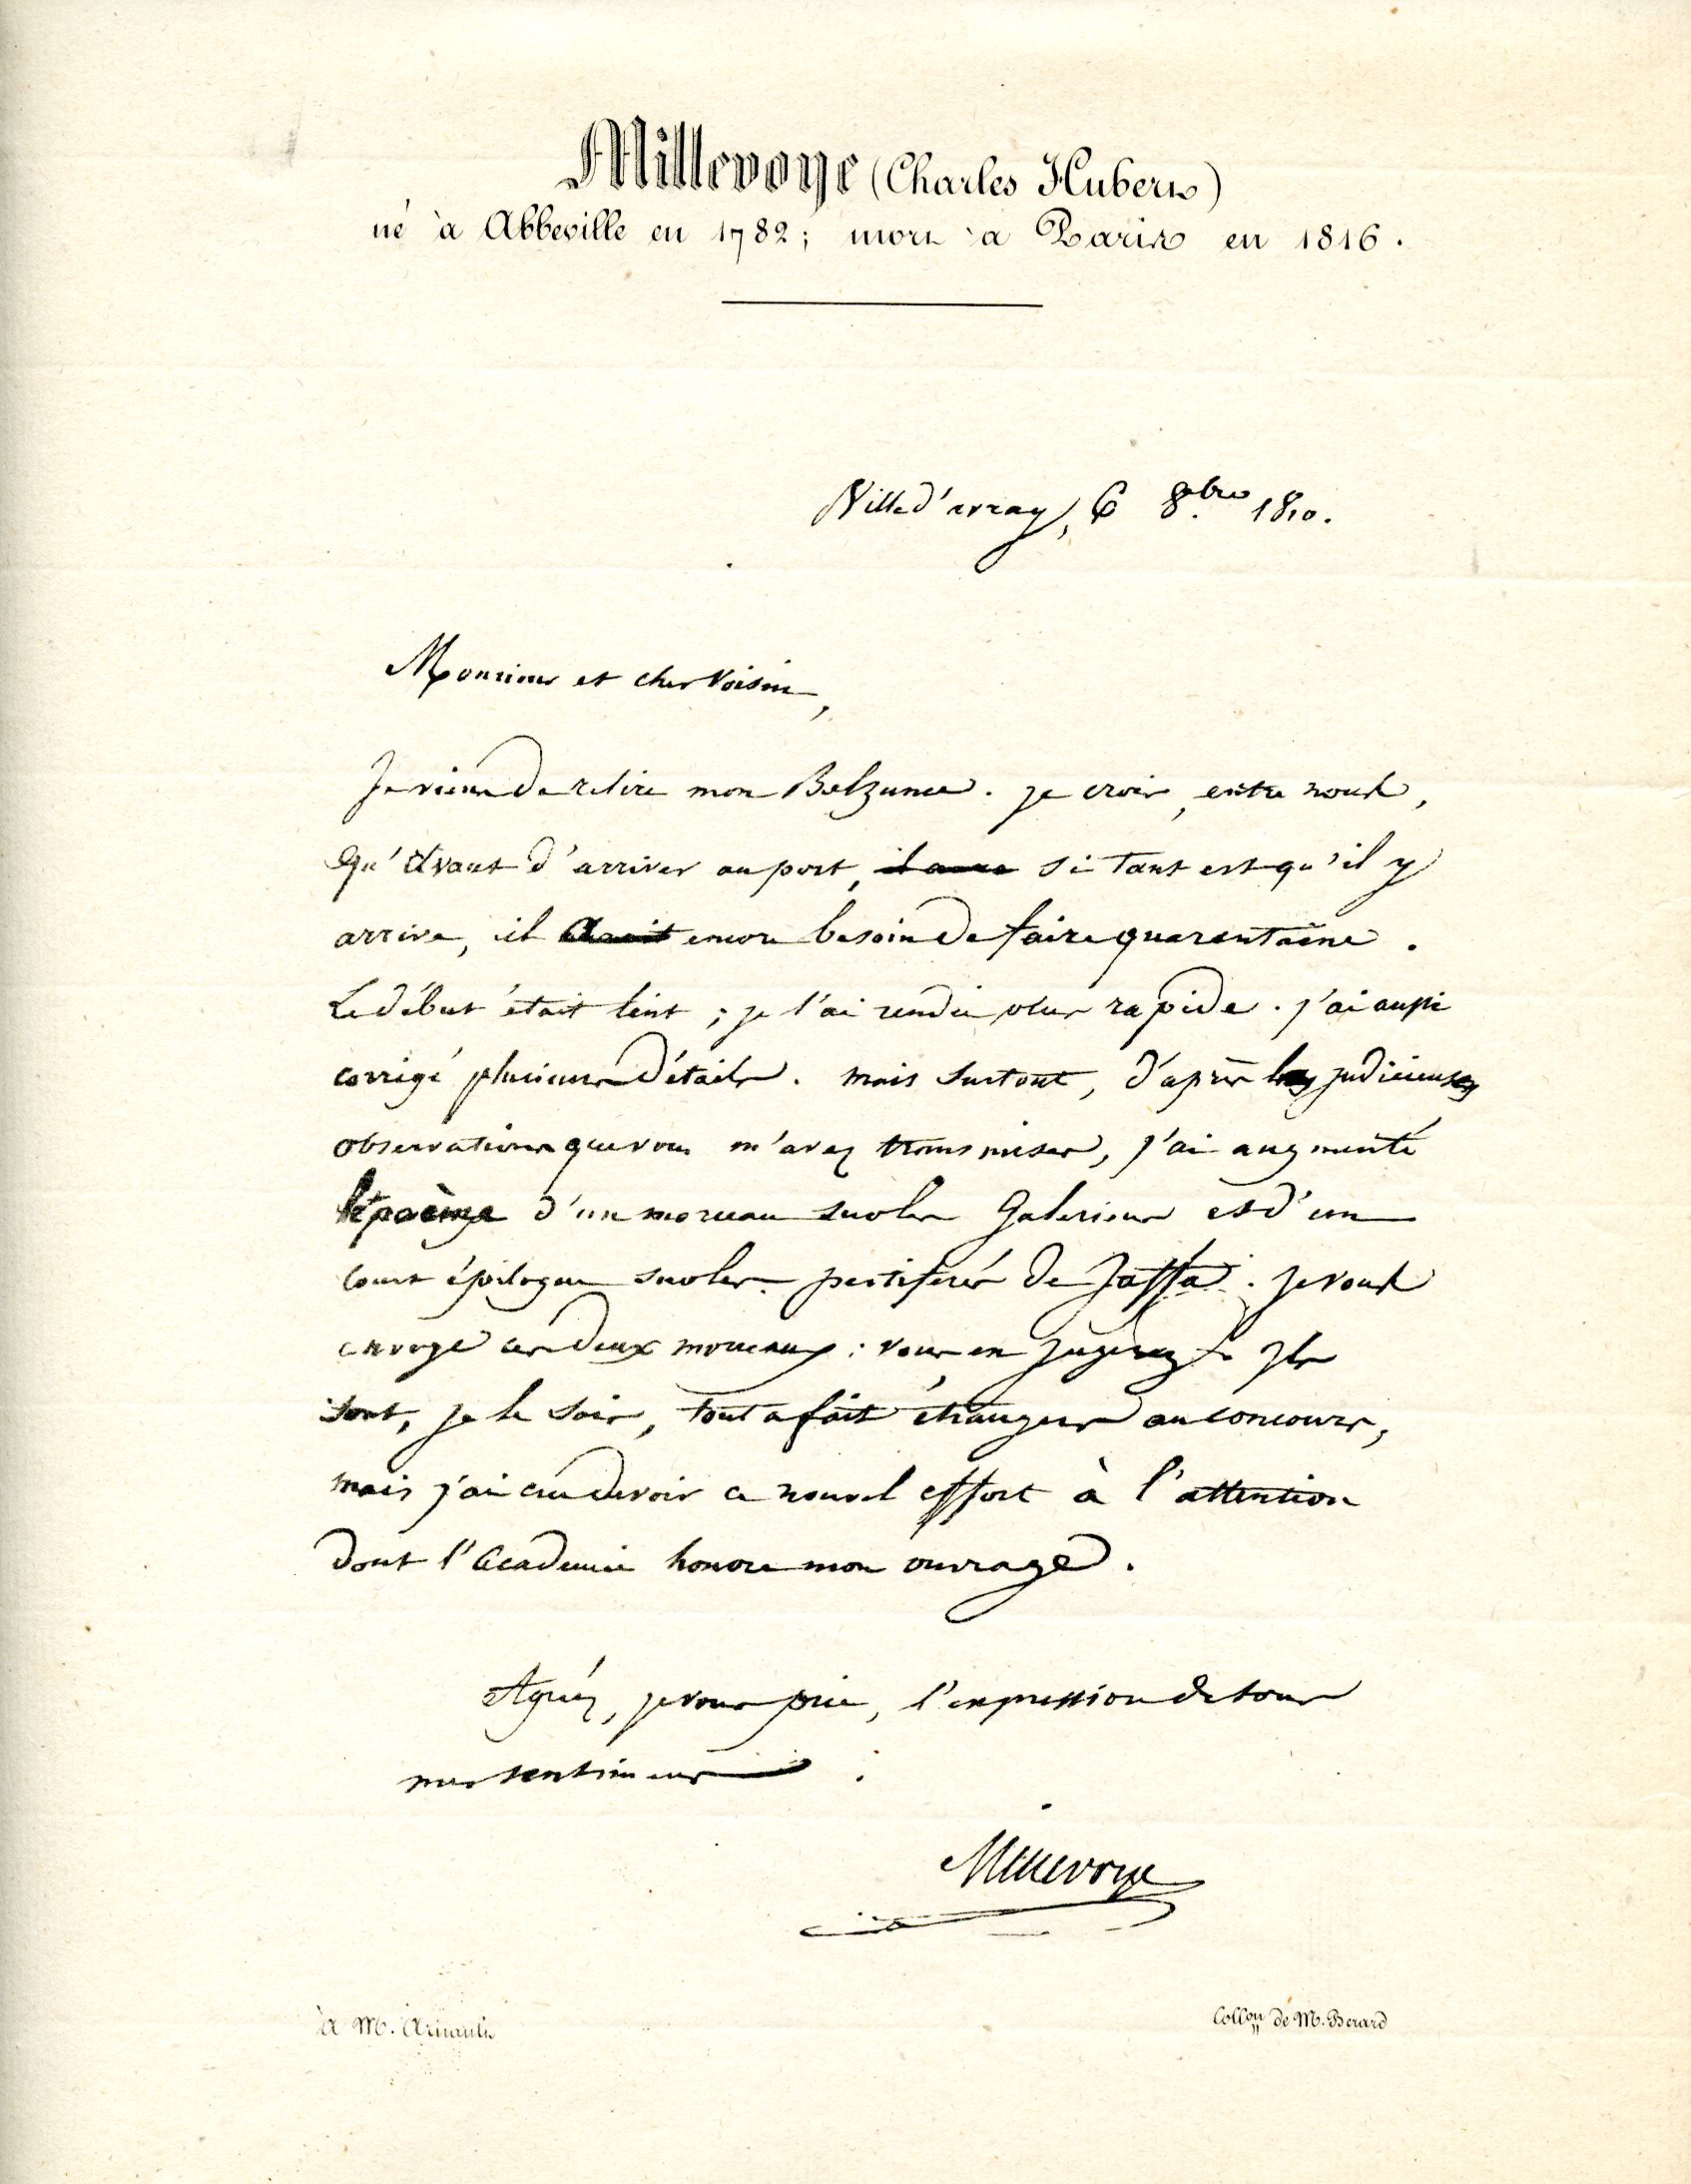 Millevoye (Charles Hubert)
né à Abbeville en 1782; mort à Paris en 1816.
Ville d'avray, 6 8.bre 1810.
Monsieur et cher Voisin,
Je viens de relire mon Belzunce. je crois, entre nous,
Qu'avant d'arriver au port, si tant est qu'il y
arrive, il encore besoin de faire quarantaine.
Le début était lent; je l'ai rendu plus rapide. j'ai aussi
corrigé plusieurs détails. mais surtout, d'après les judicieuses
observations que vous m'avez transmises, j'ai augmenté
le poème d'un morceau sur les Galériens et d'un
court épilogue sur les pestiférés de Jaffa. je vous
envoye ces deux morceaux: vous en jugerez. Ils
sont, je le sais, tout a fait étrangers au concours,
mais j'ai cru devoir ce nouvel effort à l'attention
dont l'Academie honore mon ouvrage.
Agréez, je vous prie, l'expression de tous
mes sentimens.
Millevoye
à M. Arnault
Collon de M. Berard